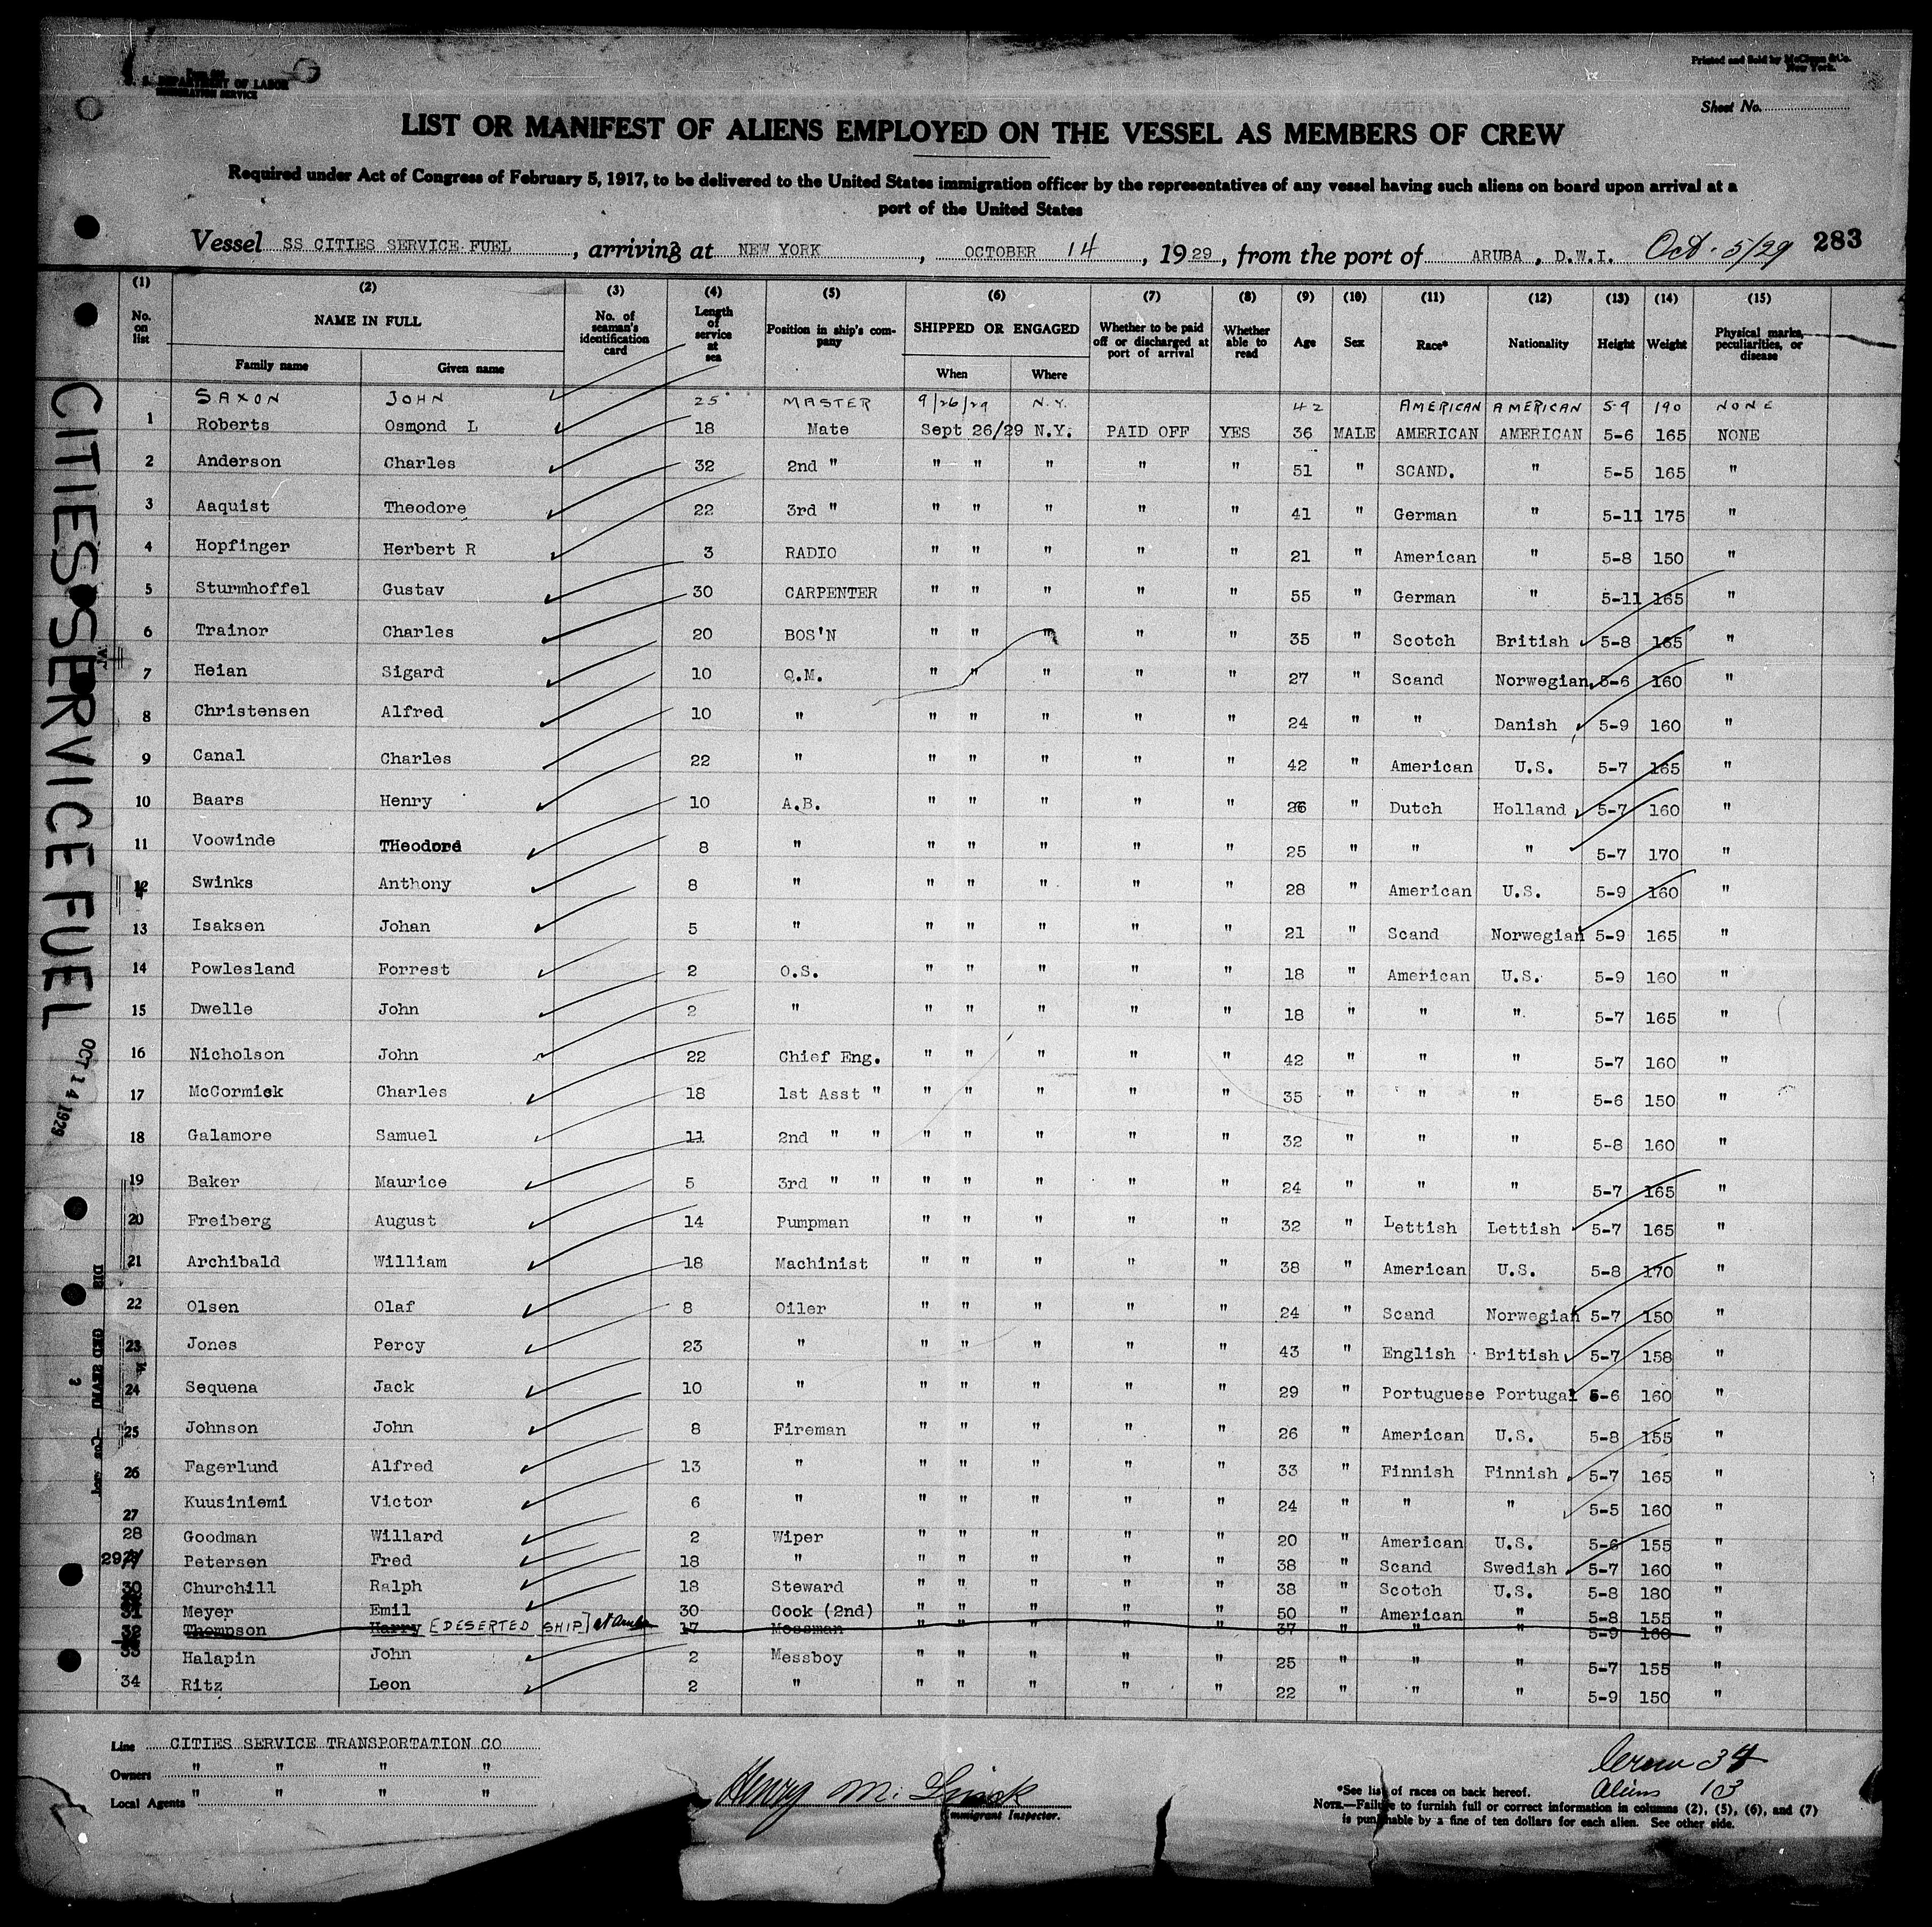 U. S. DEPARTMENT OF LABOR
IMMIGRATION SERVICE
Printed and Sold by
New York.
Sheet No.
LIST OR MANIFEST OF ALIENS EMPLOYED ON THE VESSEL AS MEMBERS OF CREW
Required under Act of Congress of February 5, 1917, to be delivered to the United States immigration officer by the representatives of any vessel having such aliens on board upon arrival at a
port of the United States
Vessel SS CITIES SERVICE FUEL, arriving at NEW YORK, OCTOBER 14, 1929, from the port of ARUBA, D.W.I. Oct. 5/29 283
(1) (2) (3) (4) (5) (6) (7) (8) (9) (10) (11) (12) (13) (14) (15)
No. on list NAME IN FULL Family name Given name No. of seaman's identification card Length of service at sea Position in ship's company SHIPPED OR ENGAGED When Where Whether to be paid off or discharged at port of arrival Whether able to read Age Sex Race* Nationality Height Weight Physical marks, peculiarities, or disease
SAXON JOHN 25 MASTER 9/26/29 N.Y. 42 AMERICAN AMERICAN 5-9 190 NONE
1 Roberts Osmond L 18 Mate Sept 26/29 N.Y. PAID OFF YES 36 MALE AMERICAN AMERICAN 5-6 165 NONE
2 Anderson Charles 32 2nd " " " " " " 51 " SCAND. " 5-5 165 "
3 Aaquist Theodore 22 3rd " " " " " " 41 " German " 5-11 175 "
4 Hopfinger Herbert R 3 RADIO " " " " " 21 " American " 5-8 150 "
5 Sturmhoffel Gustav 30 CARPENTER " " " " " 55 " German " 5-11 165 "
6 Trainor Charles 20 BOS'N " " " " " 35 " Scotch British 5-8 165 "
7 Heian Sigard 10 Q.M. " " " " " 27 " Scand Norwegian 5-6 160 "
8 Christensen Alfred 10 " " " " " " 24 " " Danish 5-9 160 "
9 Canal Charles 22 " " " " " " 42 " American U.S. 5-7 165 "
10 Baars Henry 10 A.B. " " " " " 26 " Dutch Holland 5-7 160 "
11 Voowinde THeodore 8 " " " " " " 25 " " " 5-7 170 "
12 Swinks Anthony 8 " " " " " " 28 " American U.S. 5-9 160 "
13 Isaksen Johan 5 " " " " " " 21 " Scand Norwegian 5-9 165 "
14 Powlesland Forrest 2 O.S. " " " " " 18 " American U.S. 5-9 160 "
15 Dwelle John 2 " " " " " " 18 " " " 5-7 165 "
16 Nicholson John 22 Chief Eng. " " " " " 42 " " " 5-7 160 "
17 McCormick Charles 18 1st Asst " " " " " " 35 " " " 5-6 150 "
18 Galamore Samuel 11 2nd " " " " " " " 32 " " " 5-8 160 "
19 Baker Maurice 5 3rd " " " " " " " 24 " " " 5-7 165 "
20 Freiberg August 14 Pumpman " " " " " 32 " Lettish Lettish 5-7 165 "
21 Archibald William 18 Machinist " " " " " 38 " American U.S. 5-8 170 "
22 Olsen Olaf 8 Oiler " " " " " 24 " Scand Norwegian 5-7 150 "
23 Jones Percy 23 " " " " " " 43 " English British 5-7 158 "
24 Sequena Jack 10 " " " " " " 29 " Portuguese Portugal 5-6 160 "
25 Johnson John 8 Fireman " " " " " 26 " American U.S. 5-8 155 "
26 Fagerlund Alfred 13 " " " " " " 33 " Finnish Finnish 5-7 165 "
27 Kuusiniemi Victor 6 " " " " " " 24 " " " 5-5 160 "
28 Goodman Willard 2 Wiper " " " " " 20 " American U.S. 5-6 155 "
29 Petersen Fred 18 " " " " " " 38 " Scand Swedish 5-7 160 "
30 Churchill Ralph 18 Steward " " " " " 38 " Scotch U.S. 5-8 180 "
31 Meyer Emil 30 Cook (2nd) " " " " " 50 " American " 5-8 155 "
32 Thompson Harry [DESERTED SHIP] at Aruba 17 Messman " " " " " 37 " " " 5-9 160 "
33 Halapin John 2 Messboy " " " " " 25 " " " 5-7 155 "
34 Ritz Leon 2 " " " " " " 22 " " " 5-9 150 "
CITIES SERVICE FUEL OCT 14 1929
Line CITIES SERVICE TRANSPORTATION CO
Owners " " " "
Local Agents " " " "
Henry M.
Immigrant Inspector.
Crew 34
Aliens 13
*See list of races on back hereof.
NOTE.—Failure to furnish full or correct information in columns (2), (5), (6), and (7)
is punishable by a fine of ten dollars for each alien. See other side.